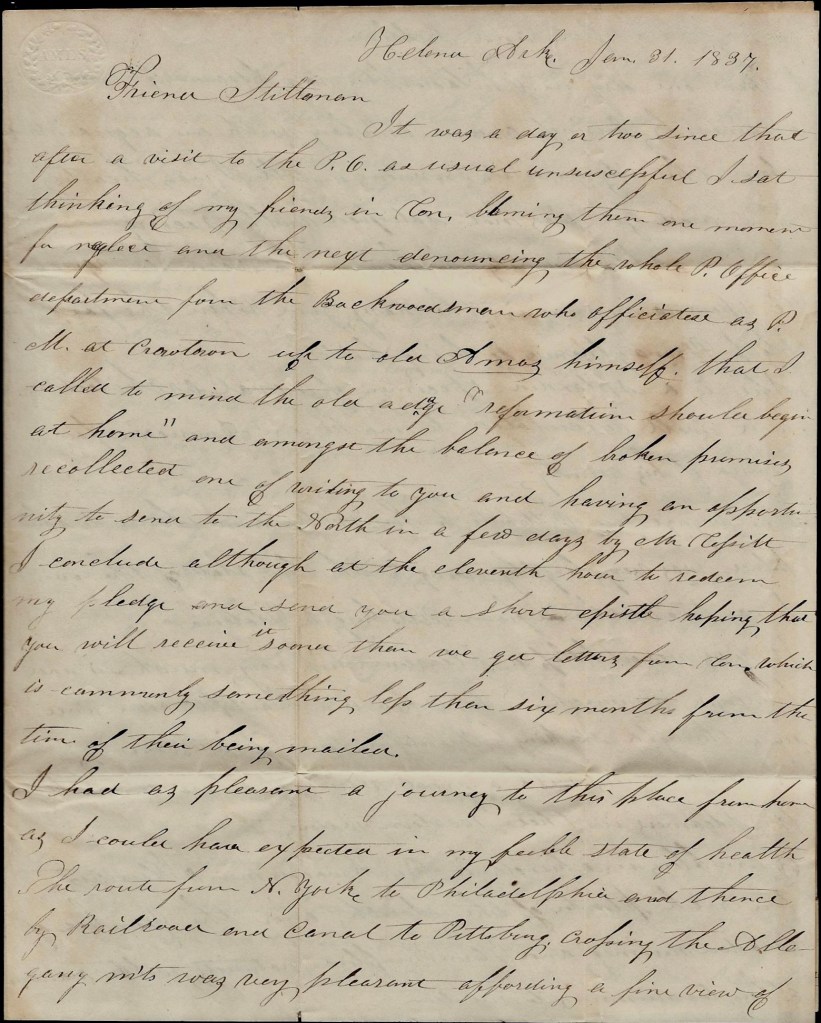 Helena Ark. Jan. 31. 1837.
Friend Stillman
It was a day or two since that
after a visit to the P. O. as usual unsuccessful I sat
thinking of my friends in Con, blaming them one moment
for neglect and the next denouncing the whole P. Office
department from the Backwoodsman who officiates as P.
M. at Crowtown up to old Amos himself. that I
called to mind the old adage "reformation should begin
at home" and amongst the balance of broken promises
recollected one of writing to you and having an opportu
nity to send to the North in a few days by Mr
I conclude although at the eleventh hour to redeem
my pledge and send you a short epistle hoping that
you will receive it sooner than we get letters from Con, which
is commonly something less than six months from the
time of their being mailed.
I had as pleasant a journey to this place from home
as I could have expected in my feeble state of health
The route from N. York to Philadelphia and thence
by Railroad and Canal to Pittsburg, crossing the Alle-
gany mts was very pleasant affording a fine view of